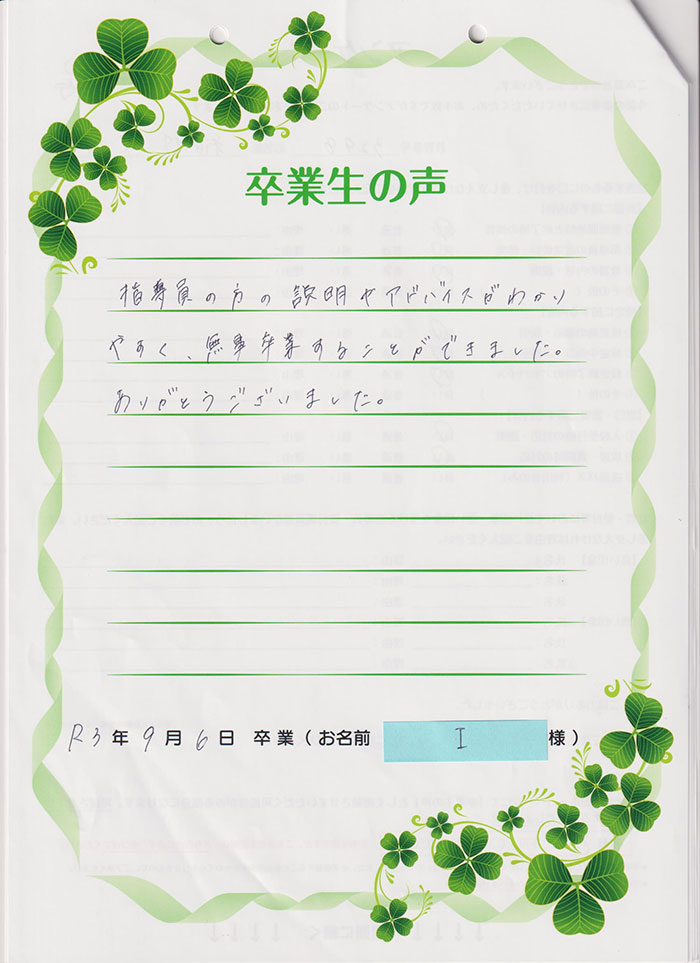 卒業生の声
指導員の方の説明やアドバイスがわかり
やすく、無事卒業することができました。
ありがとうございました。
R3年9月6日 卒業(お名前 I 様)